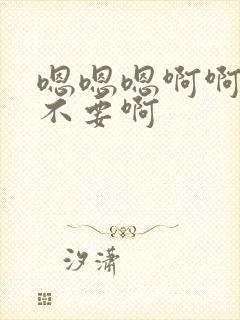 嗯嗯嗯啊啊
不要啊
汐潇